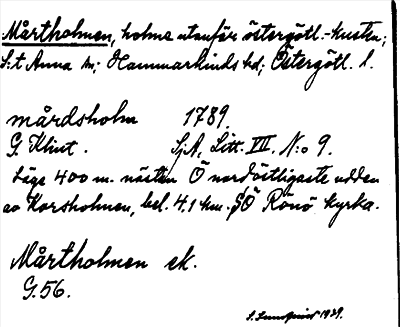 Mårtholmen, holme utanför östergötl.-kusten;
S:t Anna sn; Hammarkinds hd; Östergötl. l.
mårdsholm 1789.
G. Klint. SjA, Litt. VII. N:o 9.
Läge 400 m. nästan Ö nordöstligaste udden
av Korsholmen, bel. 4,1 km. SÖ Rönö kyrka.
Mårtholmen ek.
G. 56.
S. Lundqvist 1939.